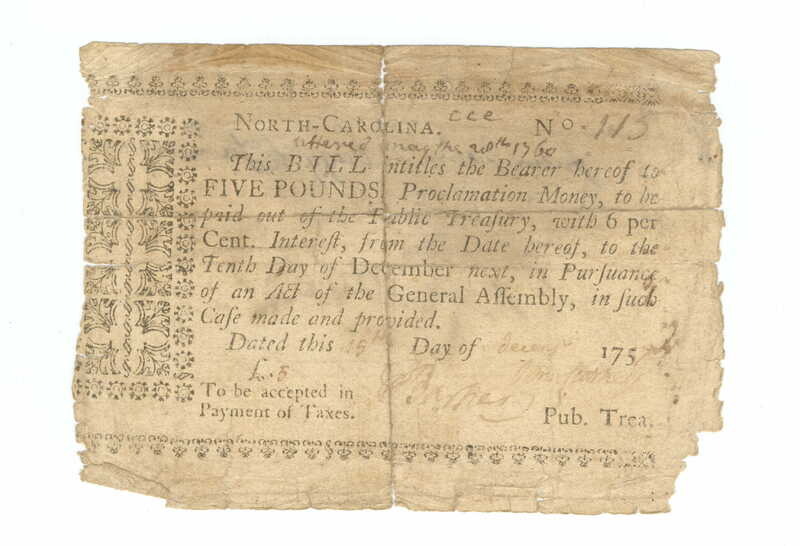 NORTH-CAROLINA. cce No. 115
uttered may the 20th 1760
This BILL intitles the Bearer hereof to
FIVE POUNDS Proclamation Money, to be
paid out of the Public Treasury, with 6 per
Cent. Interest, from the Date hereof, to the
Tenth Day of December next, in Pursuance
of an Act of the General Assembly, in such
Case made and provided.
Dated this Day of 175
£. 5
To be accepted in
Payment of Taxes.
Pub. Trea.